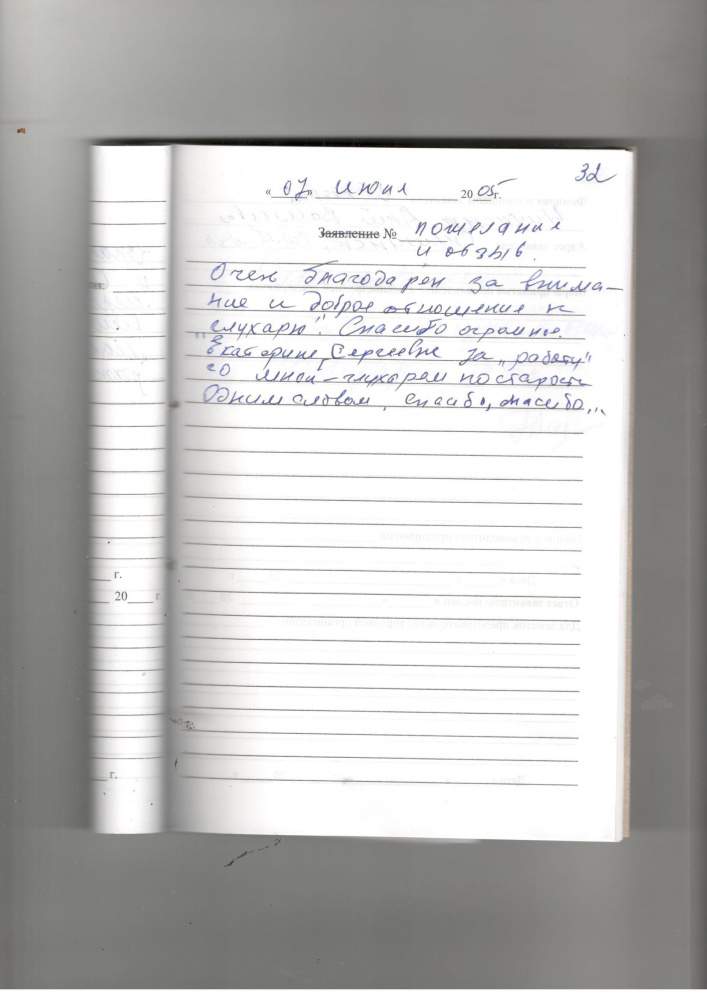 32
« 07 » Июня 20 05 г.
Заявление № пожелания
и отзыв.
Очен благодарен за внима-
ние и доброе отношение к
"глухарю". Спасибо огромное
Екатерине Сергеевне за "работу"
со мной - глухарем по старости
Одним словом, спасибо, спасибо...
г.
20 г
г.